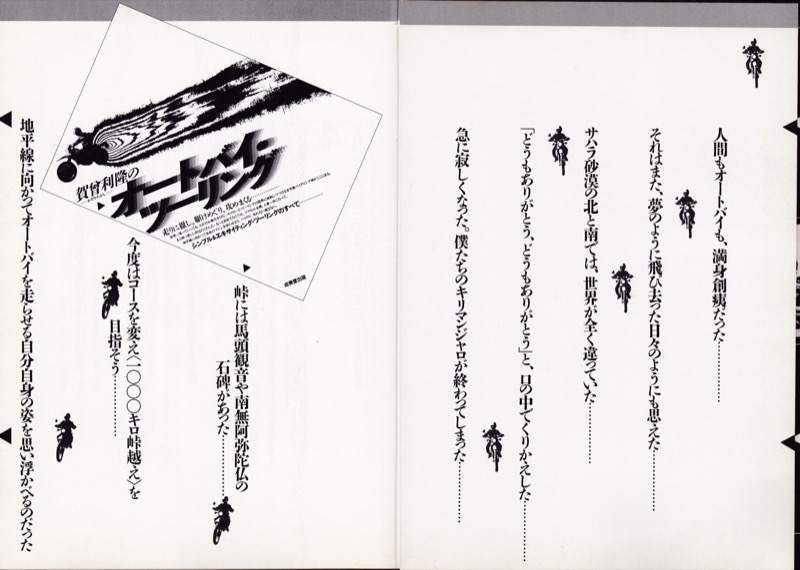 人間もオートバイも、満身創痍だった…………
それはまた、夢のように飛び去った日々のようにも思えた…………
サハラ砂漠の北と南では、世界が全く違っていた…………
「どうもありがとう、どうもありがとう」と、口の中でくりかえした…………
急に寂しくなった。僕たちのキリマンジャロが終わってしまった…………
賀曽利隆の
オートバイ・
ツーリング
走りに徹し、駆けめぐり、攻めまくる
シンプル&エキサイティング・ツーリングのすべて
成美堂出版
峠には馬頭観音や南無阿弥陀仏の
石碑があった…………
今度はコースを変え〈一〇〇〇キロ峠越え〉を
目指そう…………
地平線に向かってオートバイを走らせる自分自身の姿を思い浮かべるのだった